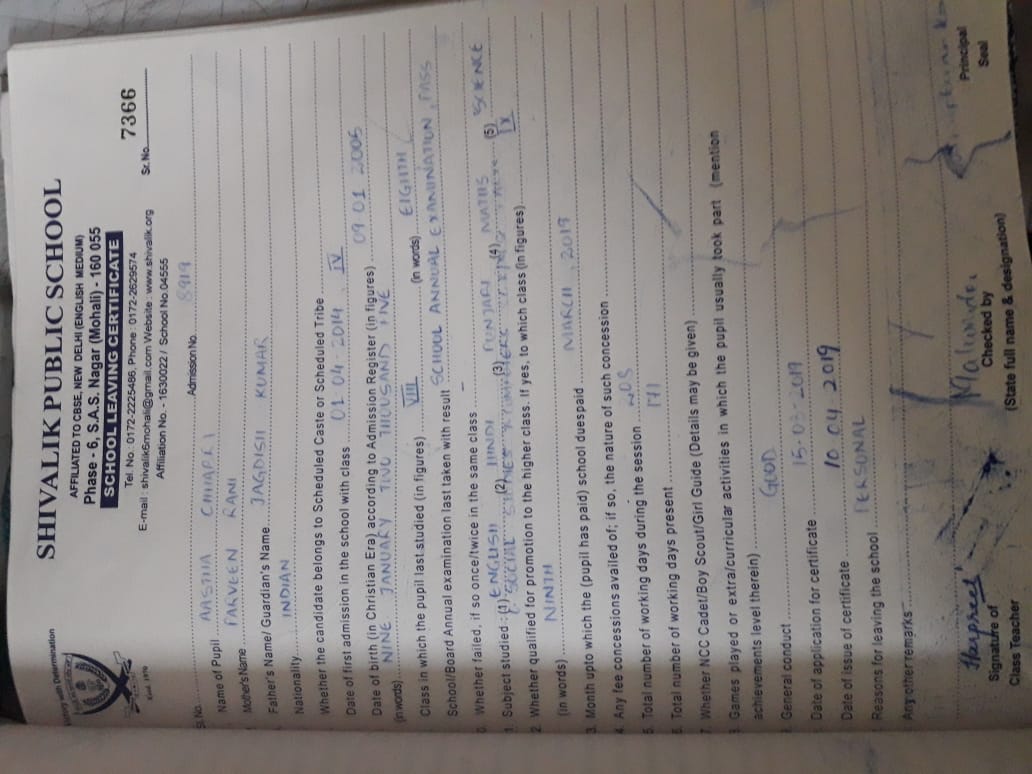 SHIVALIK PUBLIC SCHOOL
AFFILIATED TO CBSE, NEW DELHI (ENGLISH MEDIUM)
Phase - 6, S.A.S. Nagar (Mohali) - 160 055
SCHOOL LEAVING CERTIFICATE
Tel. No.: 0172-2225486, Phone : 0172-2629574
E-mail : shivalik6mohali@gmail.com Website : www.shivalik.org
Affiliation No. - 1630022 / School No.04555
Sr. No. 7366
Sl. No. Admission No. 8919
Name of Pupil AASTHA CHHABRA
Mother's Name PARVEEN RANI
Father's Name/ Guardian's Name JAGDISH KUMAR
Nationality INDIAN
Whether the candidate belongs to Scheduled Caste or Scheduled Tribe
Date of first admission in the school with class 01-04-2014, IV
Date of birth (in Christian Era) according to Admission Register (in figures) 09 01 2005
(in words) NINE JANUARY TWO THOUSAND FIVE
Class in which the pupil last studied (in figures) VIII (in words) EIGHTH
School/Board Annual examination last taken with result SCHOOL ANNUAL EXAMINATION, PASS
Whether failed, if so once/twice in the same class -
Subject studied : (1) ENGLISH (2) HINDI (3) PUNJABI (4) MATHS (5) SCIENCE
Whether qualified for promotion to the higher class. If yes, to which class (in figures) IX
(in words) NINTH
Month upto which the (pupil has paid) school duespaid MARCH, 2019
Any fee concessions availed of; if so, the nature of such concession
Total number of working days during the session 205
Total number of working days present 171
Whether NCC Cadet/Boy Scout/Girl Guide (Details may be given)
Games played or extra/curricular activities in which the pupil usually took part (mention
achievements level therein)
General conduct GOOD
Date of application for certificate 15-03-2019
Date of issue of certificate 10 04 2019
Reasons for leaving the school PERSONAL
Any other remarks
Harpreet
Signature of
Class Teacher
Checked by
(State full name & designation)
Principal
Seal